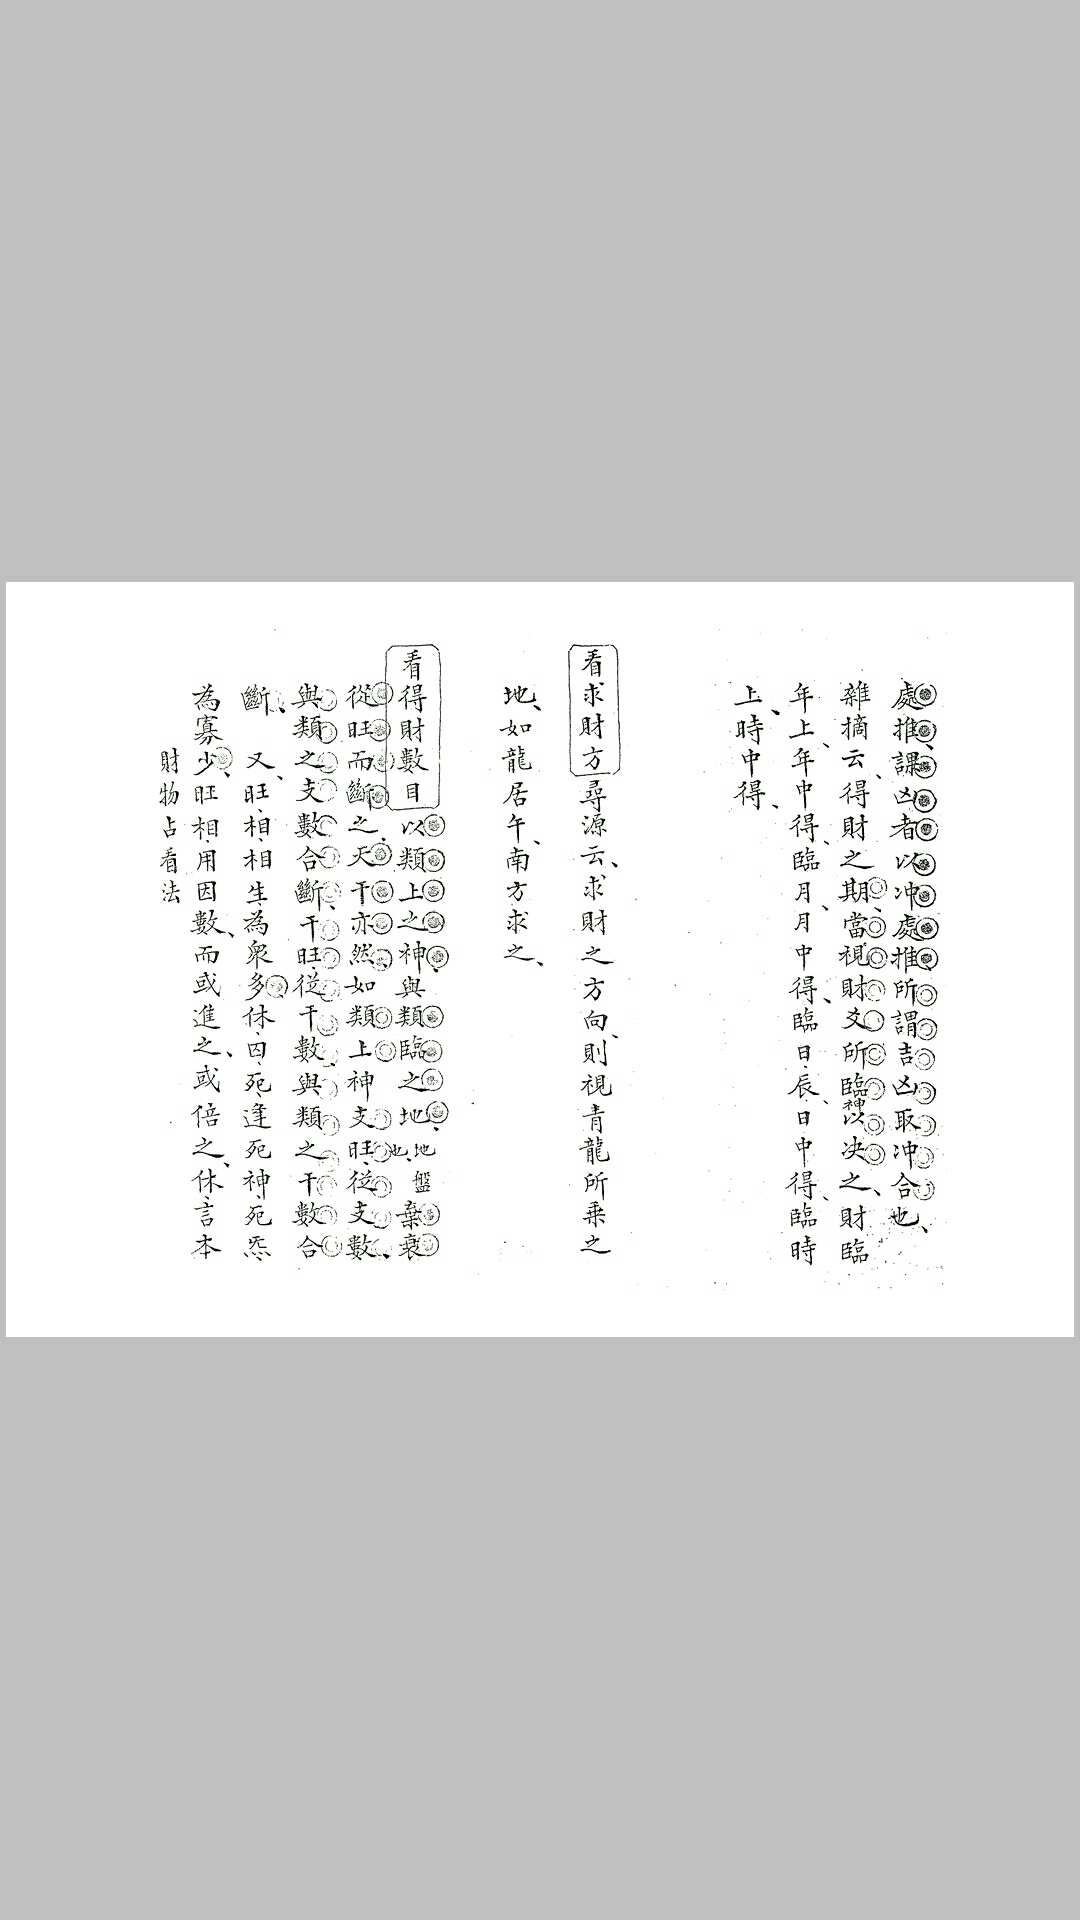 處推、課凶者以冲處推所謂吉凶取冲合也、
雜摘云、得財之期、當視財爻所臨神以决之、財臨
年上、年中得、臨月、月中得、臨日辰、日中得、臨時
上、時中得、
看求財方 尋源云、求財之方向、則視青龍所乗之
地、如龍居午、南方求之、
看得財數目 以類上之神、與類臨之地、地盤也、棄衰
從旺而斷之、天干亦然、如類上神支旺、從支數、
與類之支數合斷、干旺、從干數、與類之干數合
斷、 又、旺、相、相生、為衆多、休、囚、死、逢死神、死炁、
為寡少、旺相、用因數、而或進之、或倍之、休、言本
財物占看法